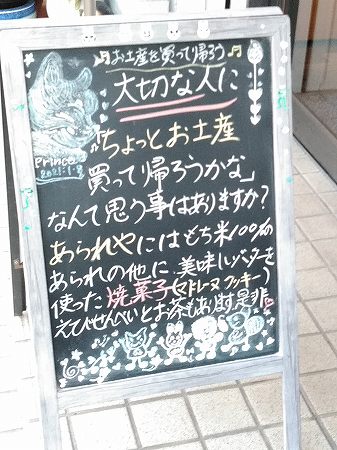 ♫お土産を買って帰ろう♫
大切な人に
Prince
「ちょっとお土産
買って帰ろうかな」
なんて思う事はありますか?
あられやにはもち米100%の
あられの他に美味しいバターを
使った焼菓子(マドレーヌ クッキー)
えびせんべいとお茶もあります是非